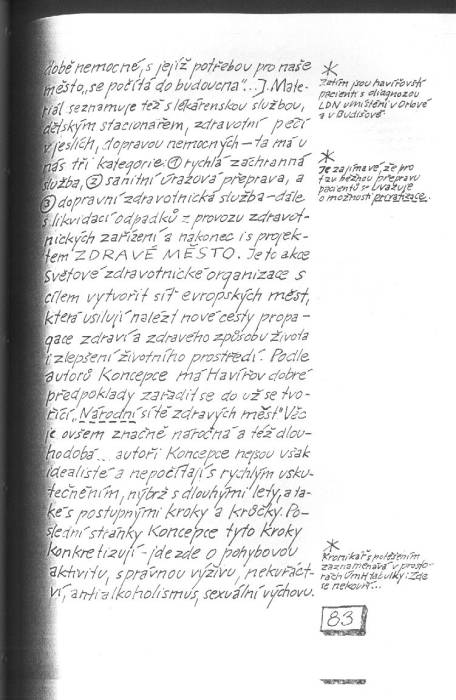 době nemocné, s jejíž potřebou pro naše
město „se počítá do budoucna"...]. Mate-
riál seznamuje též s lékárenskou službou,
dětským stacionářem, zdravotní péčí
v jeslích, dopravou nemocných – ta má u
nás tři kategorie: ① rychlá záchranná
služba, ② sanitní úrazová přeprava, a
③ dopravní zdravotnická služba – dále
s likvidací odpadků z provozu zdravot-
nických zařízení a nakonec i s projek-
tem ZDRAVÉ MĚSTO. Je to akce
Světové zdravotnické organizace s
cílem vytvořit síť evropských měst,
která usilují nalézt nové cesty propa-
gace zdraví a zdravého způsobu života
i zlepšení životního prostředí. Podle
autorů Koncepce má Havířov dobré
předpoklady zařadit se do už se tvo-
řící „Národní sítě zdravých měst" Věc
je ovšem značně náročná a též dlou-
hodobá... autoři Koncepce nejsou však
idealisté a nepočítají s rychlým usku-
tečněním, nýbrž s dlouhými lety, a ta-
ké s postupnými kroky a krůčky. Po-
slední stránky Koncepce tyto kroky
konkretizují – jde zde o pohybovou
aktivitu, správnou výživu, nekuřáct-
ví, antialkoholismus, sexuální výchovu.
*
Zatím jsou havířovští
pacienti s diagnozou
LDN umístěni v Orlové
a v Budišově
*
Je zajímavé, že pro
tzv. běžnou přepravu
pacientů se uvažuje
o možnosti privatizace.
*
Kronikář s potěšením
zaznamenává v prosto-
rách ÚMH tabulky: Zde
se nekouří...
83